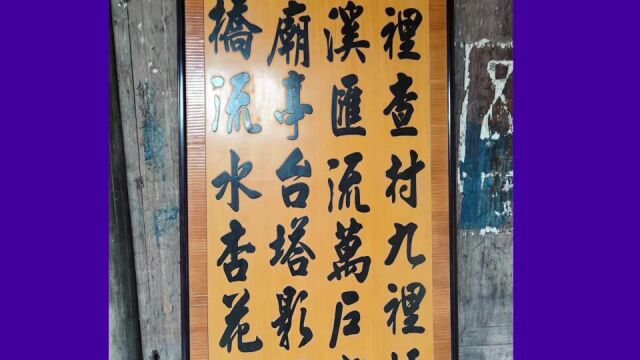 裡查村九裡
溪匯流萬戶
廟亭台塔影
橋流水杏花